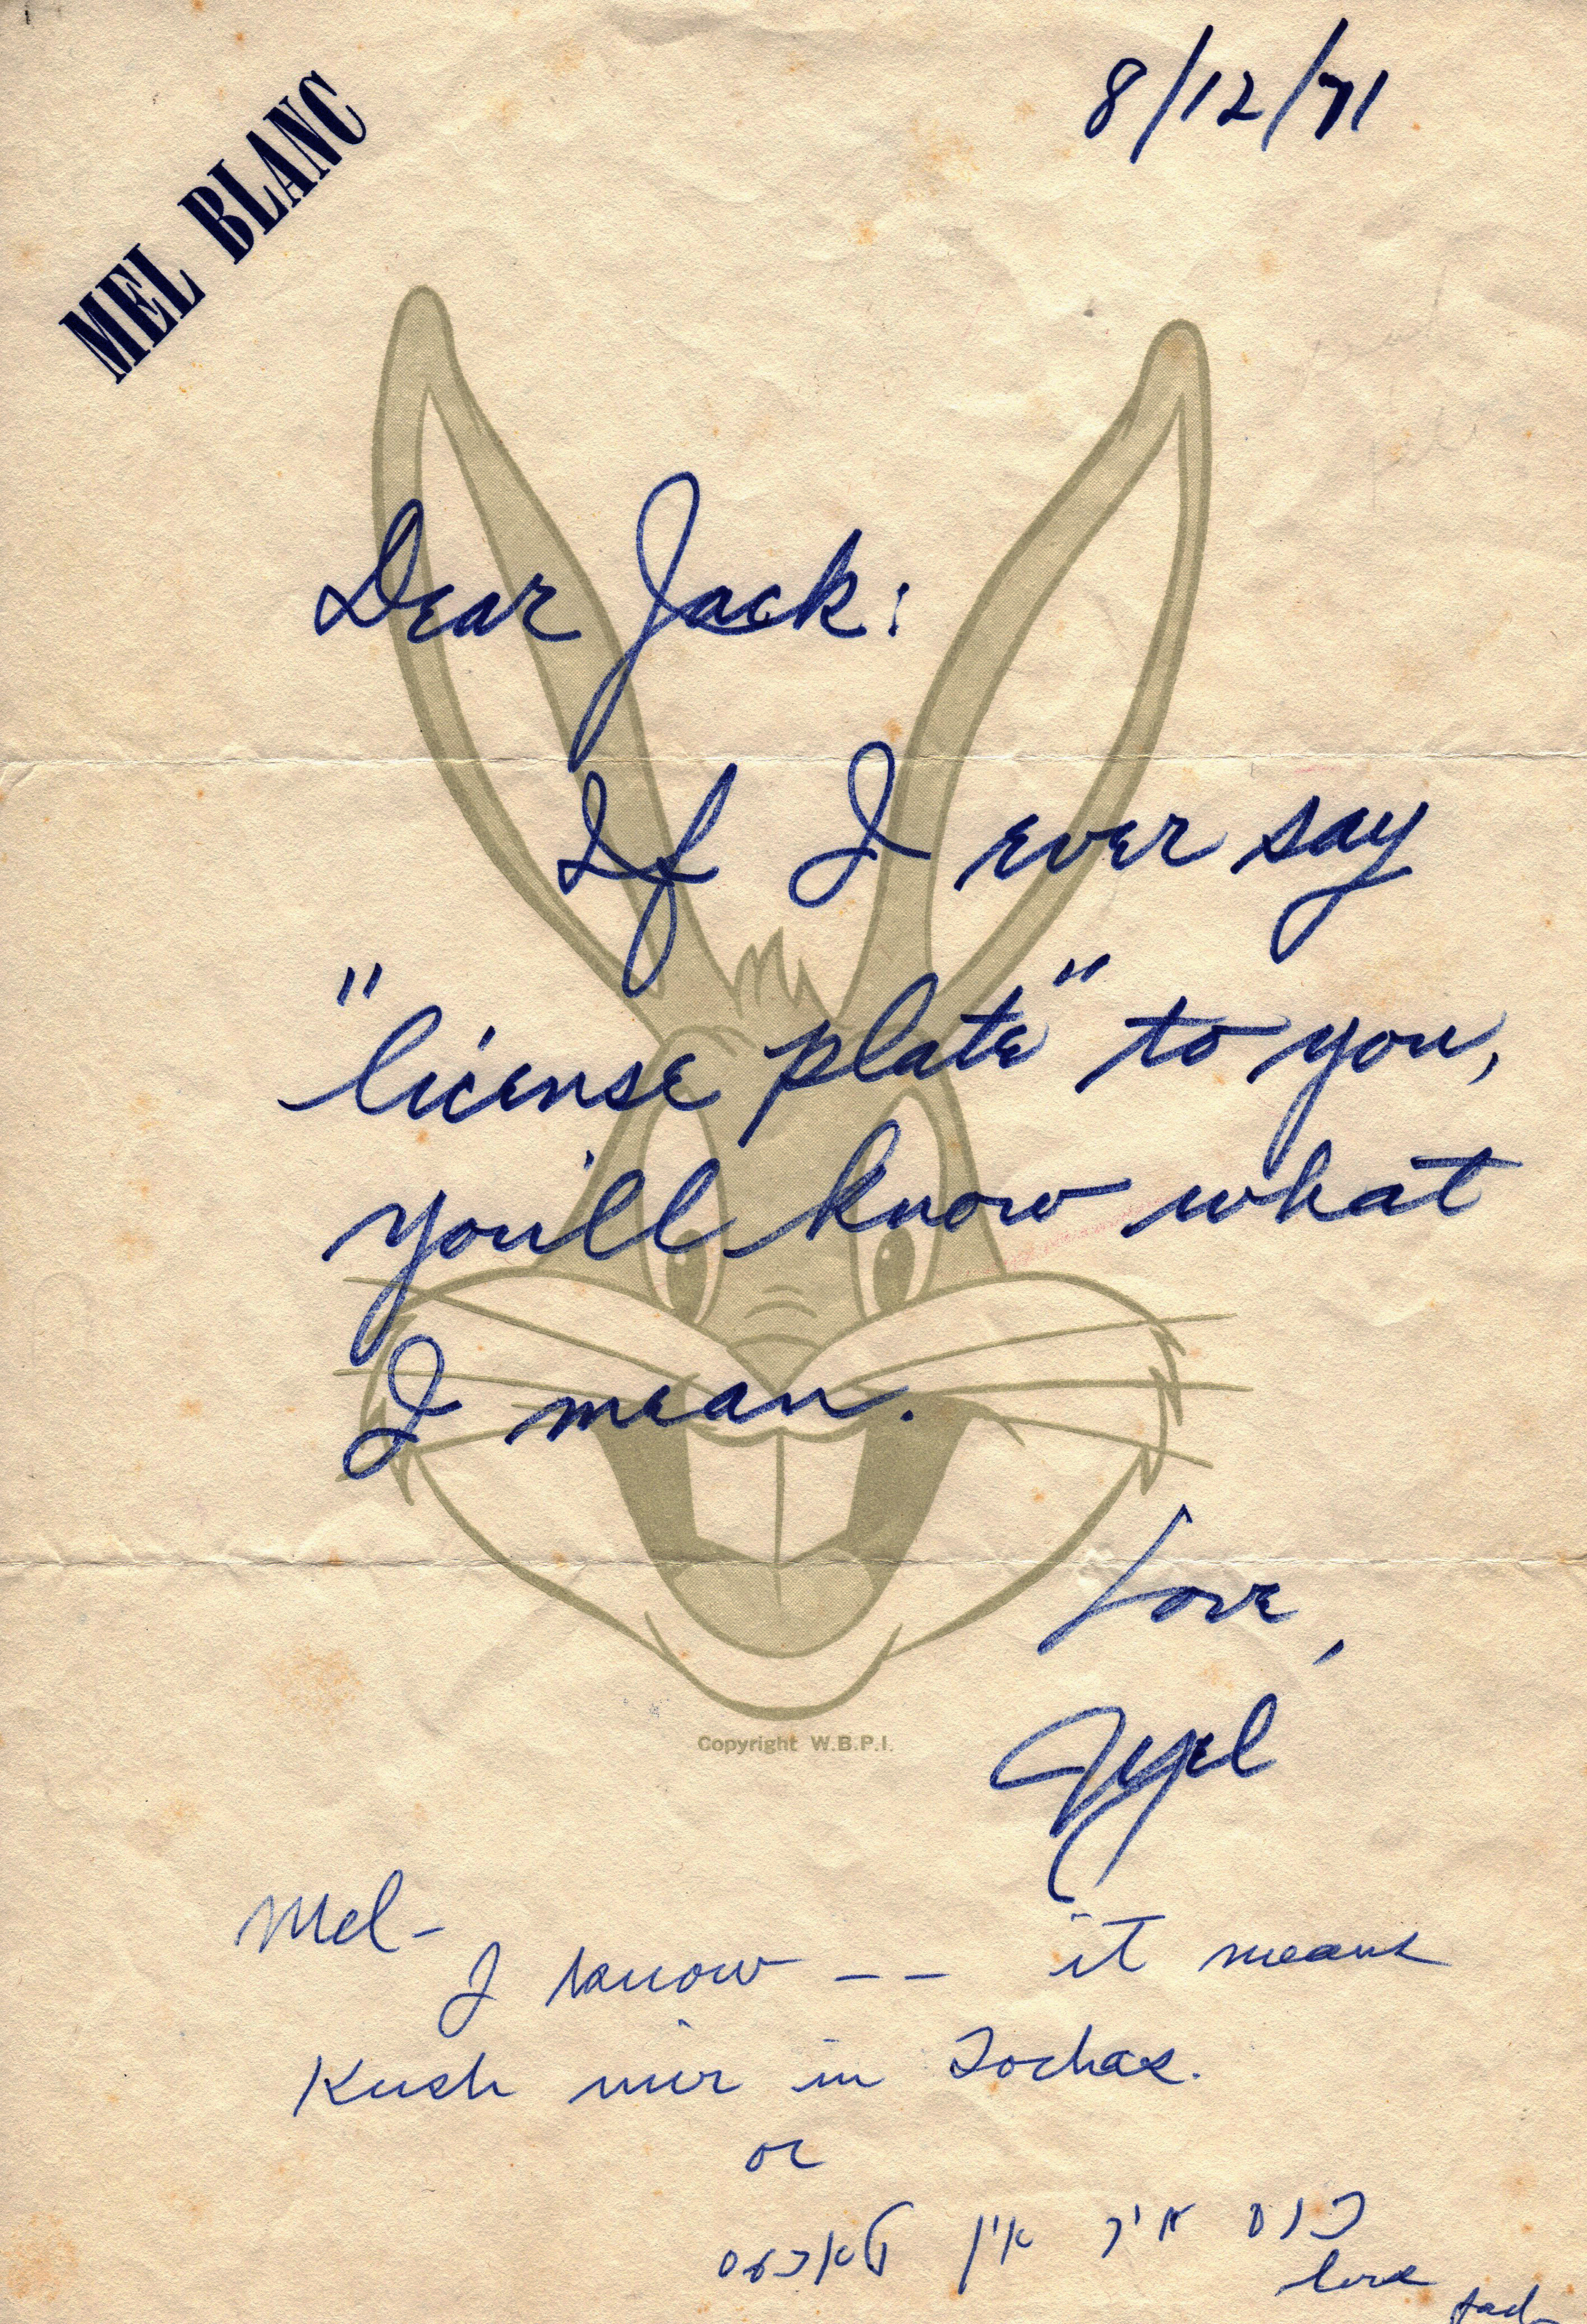 MEL BLANC
8/12/71
Dear Jack:
If I ever say
"license plate" to you,
you'll know what
I mean.
Love,
Mel
Copyright W.B.P.I.
Mel-
I know -- it means
Kush mir in Tochas.
or
כוס מיר אין טאכעס
love
Jack